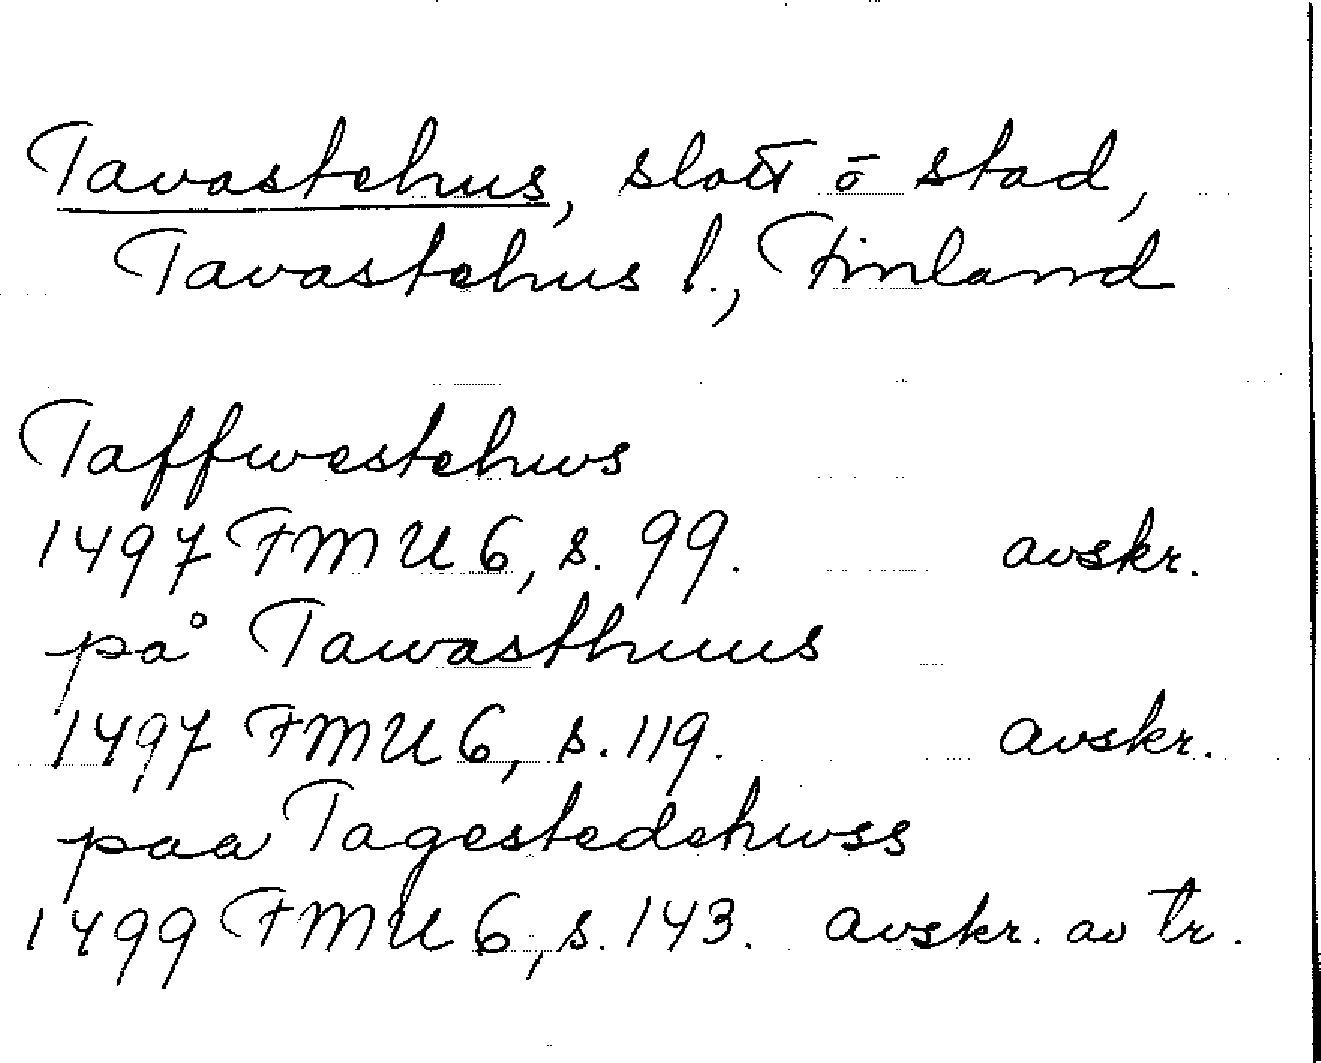 Tavastehus, slott ō stad,
Tavastehus l., Finland
Taffwestehws
1497 FMU 6, s. 99. avskr.
på Tawasthuus
1497 FMU 6, s. 119. avskr.
paa Tagestedehwss
1499 FMU 6, s. 143. avskr. av tr.